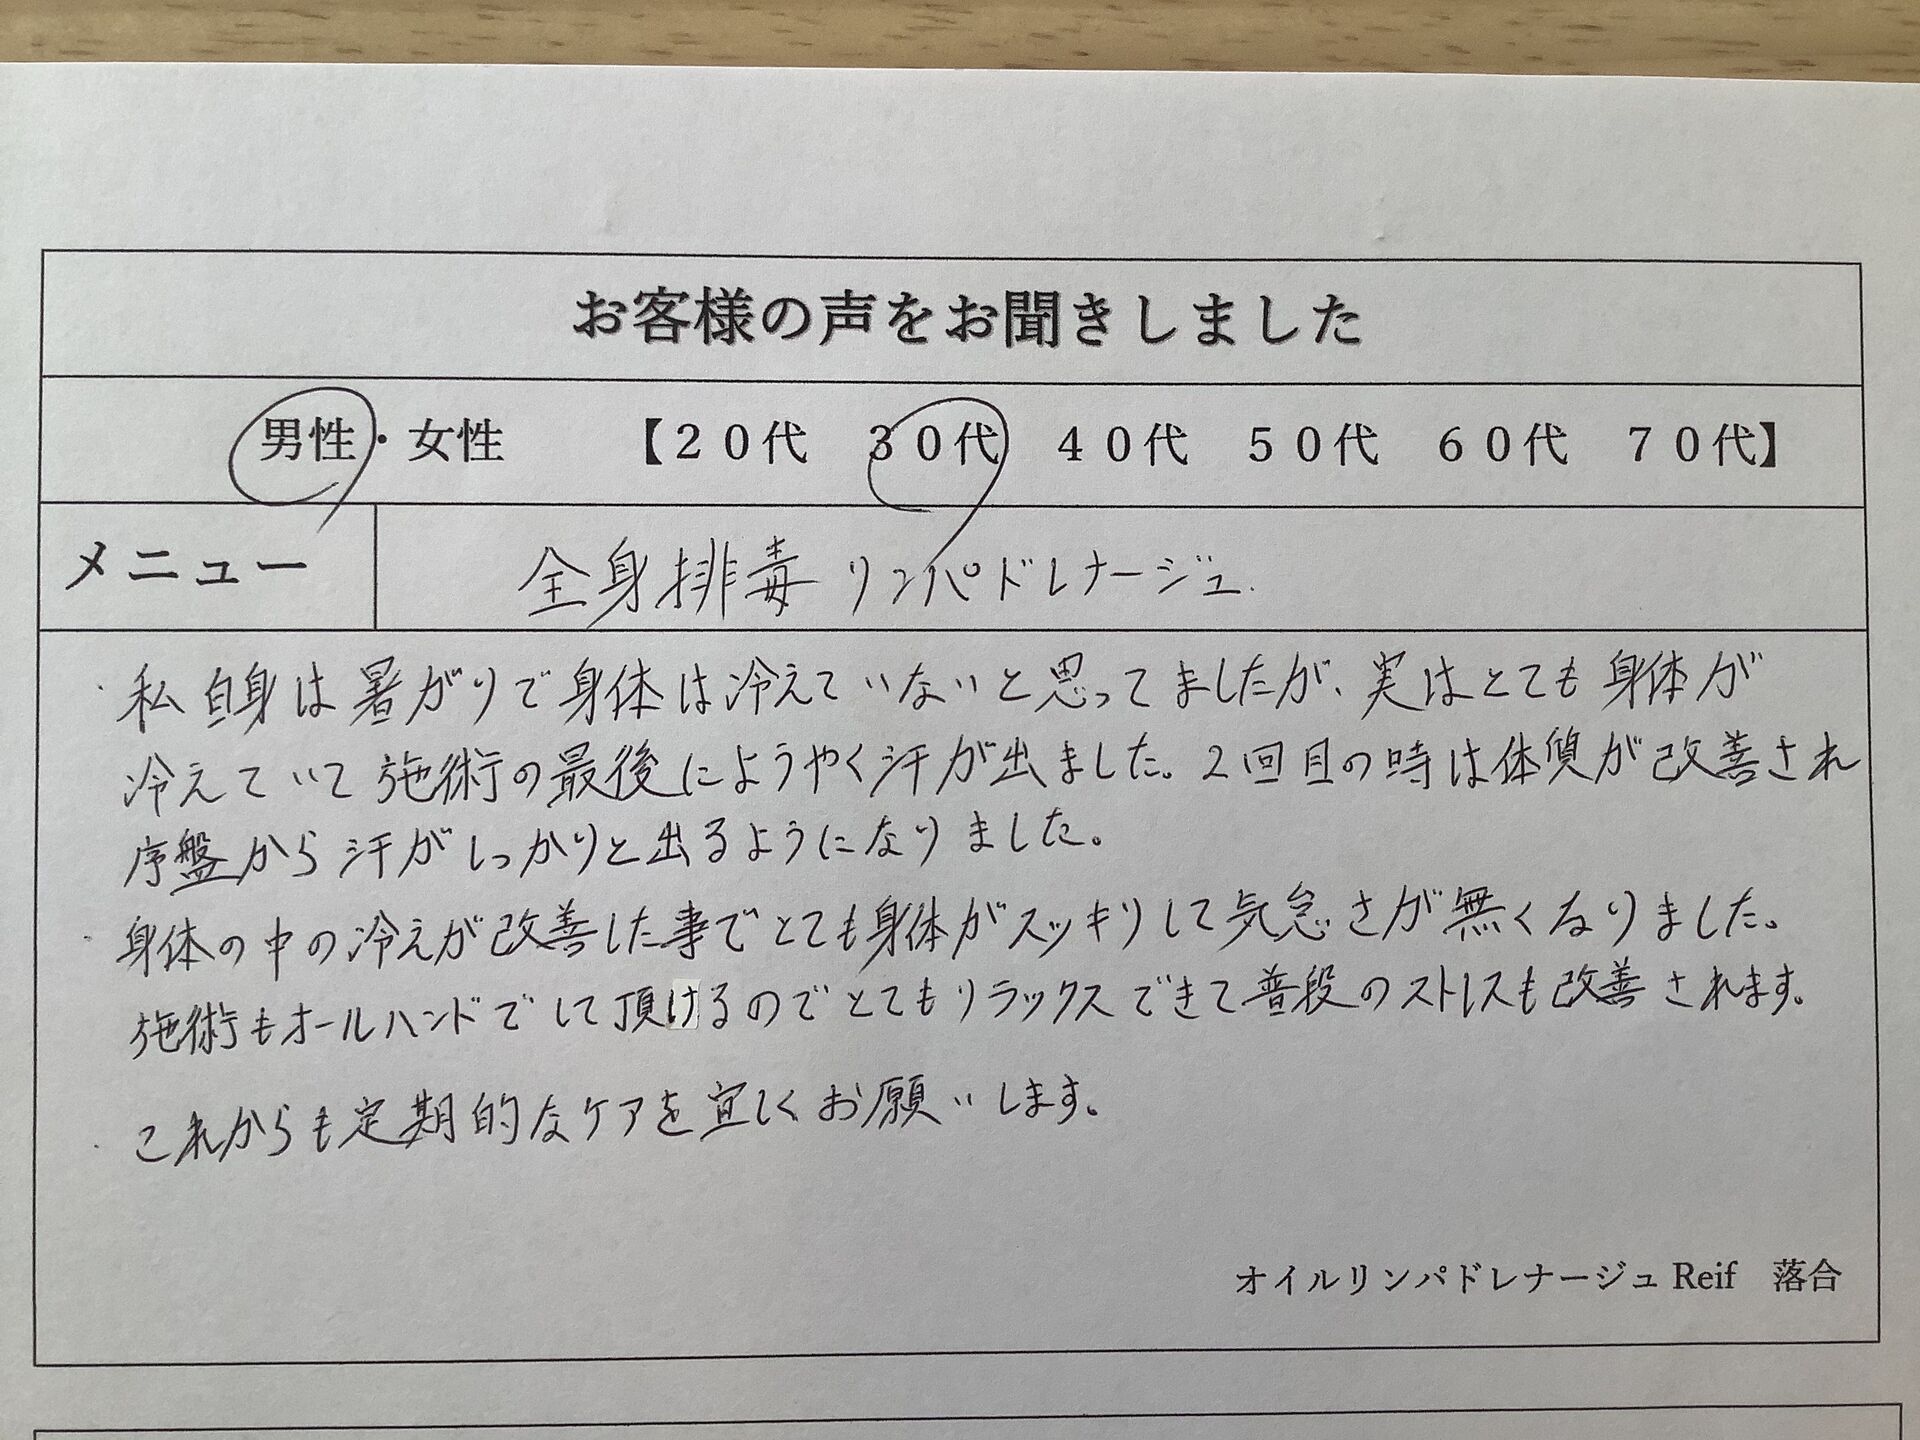 お客様の声をお聞きしました
男性・女性 【20代 30代 40代 50代 60代 70代】
メニュー 全身排毒リンパドレナージュ.
私自身は暑がりで身体は冷えていないと思ってましたが、実はとても身体が
冷えていて施術の最後にようやく汗が出ました。2回目の時は体質が改善され
序盤から汗がしっかりと出るようになりました。
身体の中の冷えが改善した事でとても身体がスッキリして気怠さが無くなりました。
施術もオールハンドでして頂けるのでとてもリラックスできて普段のストレスも改善されます。
これからも定期的なケアを宜しくお願いします。
オイルリンパドレナージュ Reif 落合